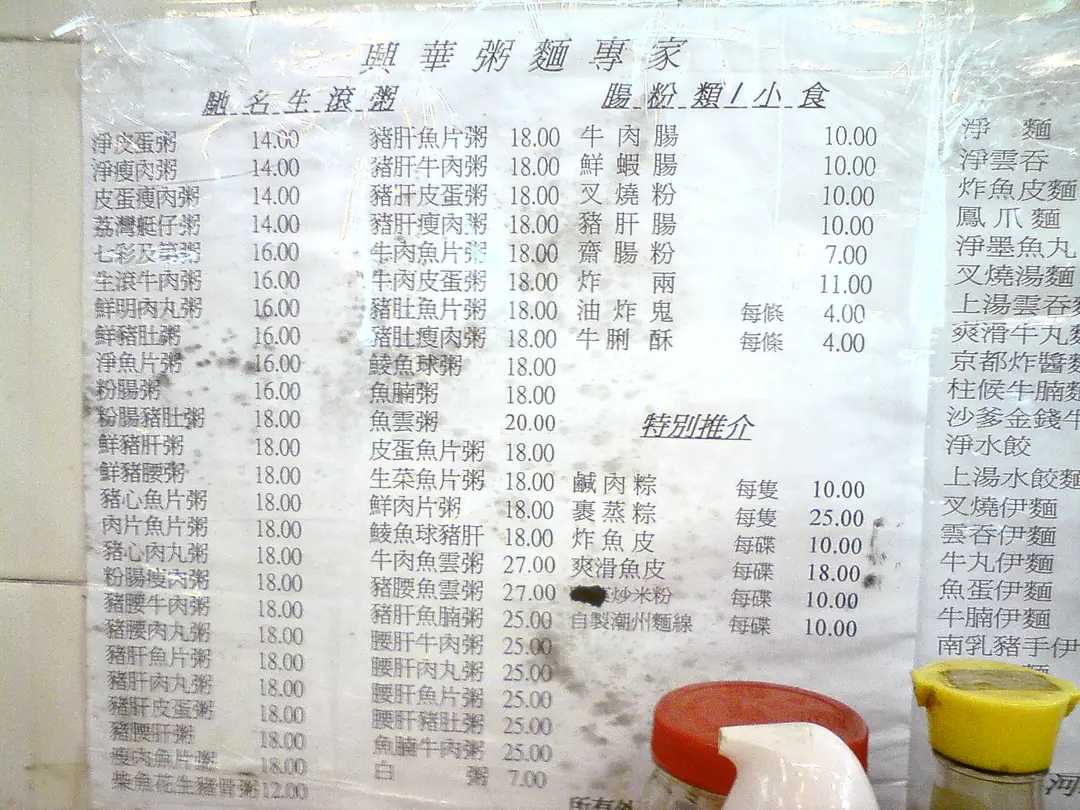 興華粥麵專家
馳名生滾粥
淨皮蛋粥 14.00
淨瘦肉粥 14.00
皮蛋瘦肉粥 14.00
荔灣艇仔粥 14.00
七彩及第粥 16.00
生滾牛肉粥 16.00
鮮明肉丸粥 16.00
鮮豬肚粥 16.00
淨魚片粥 16.00
粉腸粥 16.00
粉腸豬肚粥 18.00
鮮豬肝粥 18.00
鮮豬腰粥 18.00
豬心魚片粥 18.00
肉片魚片粥 18.00
豬心肉丸粥 18.00
粉腸瘦肉粥 18.00
豬腰牛肉粥 18.00
豬腰肉丸粥 18.00
豬肝魚片粥 18.00
豬肝肉丸粥 18.00
豬肝皮蛋粥 18.00
豬腰肝粥 18.00
瘦肉魚片粥 18.00
柴魚花生豬骨粥 12.00
豬肝魚片粥 18.00
豬肝牛肉粥 18.00
豬肝皮蛋粥 18.00
豬肝瘦肉粥 18.00
牛肉魚片粥 18.00
牛肉皮蛋粥 18.00
豬肚魚片粥 18.00
豬肚瘦肉粥 18.00
鯪魚球粥 18.00
魚腩粥 18.00
魚雲粥 20.00
皮蛋魚片粥 18.00
生菜魚片粥 18.00
鮮肉片粥 18.00
鯪魚球豬肝 18.00
牛肉魚雲粥 27.00
豬腰魚雲粥 27.00
豬肝魚腩粥 25.00
腰肝牛肉粥 25.00
腰肝肉丸粥 25.00
腰肝魚片粥 25.00
腰肝豬肚粥 25.00
魚腩牛肉粥 25.00
白粥 7.00
腸粉類/小食
牛肉腸 10.00
鮮蝦腸 10.00
叉燒粉 10.00
豬肝腸 10.00
齋腸粉 7.00
炸兩 11.00
油炸鬼 每條 4.00
牛脷酥 每條 4.00
特別推介
鹹肉粽 每隻 10.00
裹蒸粽 每隻 25.00
炸魚皮 每碟 10.00
爽滑魚皮 每碟 18.00
炒米粉 每碟 10.00
自製潮州麵線 每碟 10.00
所有外
淨麵
淨雲吞
炸魚皮麵
鳳爪麵
淨墨魚丸
叉燒湯麵
上湯雲吞
爽滑牛丸
京都炸醬
柱候牛腩
沙爹金錢牛
淨水餃
上湯水餃麵
叉燒伊麵
雲吞伊麵
牛丸伊麵
魚蛋伊麵
牛腩伊麵
南乳豬手伊
河